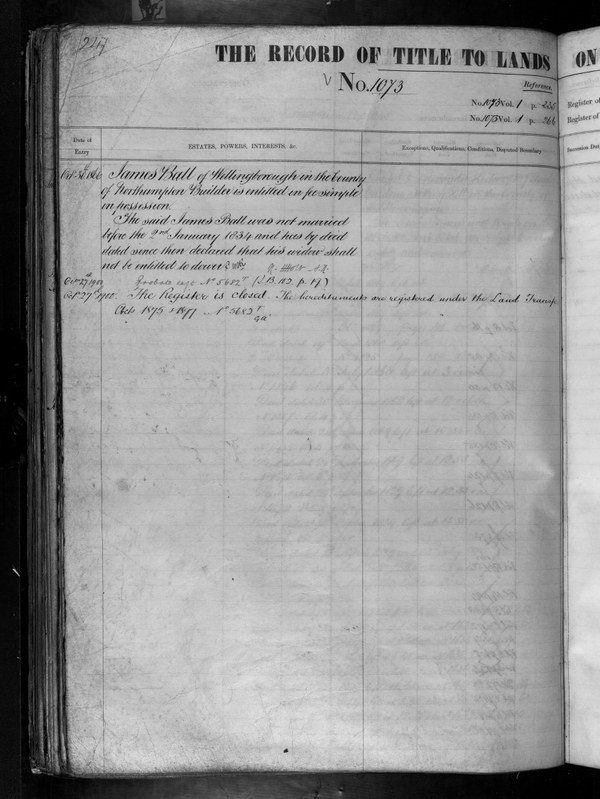 247
THE RECORD OF TITLE TO LANDS
ON
No. 1073
Reference.
No. 1073 Vol. 1 p.
No. 1073 Vol. 1 p. 266
Register of
Register of
Date of
Entry
ESTATES, POWERS, INTERESTS, &c.
Exceptions, Qualifications, Conditions, Disputed Boundary
Succession Dut
James Ball of Wellingborough in the County
of Northampton Builder is entitled in fee simple
in possession.
The said James Ball was not married
before the 2nd January 1834 and has by deed
dated since then declared that his widow shall
not be entitled to dower.
Octr 27th 1900 No 5682 T p. 17)
Octr 27th 1900. The Register is closed. The hereditaments are registered under the Land Transfr
Acts 1875 & 1897 No 5682 T